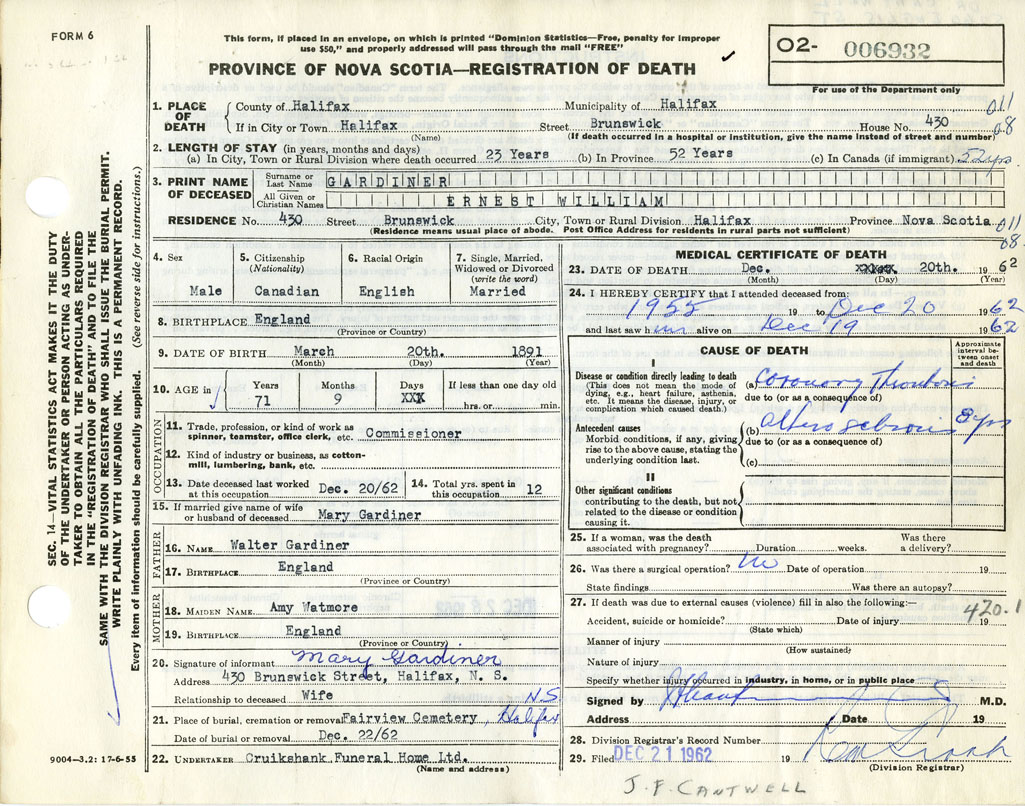 FORM 6
This form, if placed in an envelope, on which is printed "Dominion Statistics—Free, penalty for improper
use $50," and properly addressed will pass through the mail "FREE"
PROVINCE OF NOVA SCOTIA—REGISTRATION OF DEATH
O2- 006932
For use of the Department only
1. PLACE OF DEATH
County of Halifax Municipality of Halifax 011
If in City or Town Halifax Street Brunswick House No. 430 08
(Name) (If death occurred in a hospital or institution, give the name instead of street and number)
2. LENGTH OF STAY (in years, months and days)
(a) In City, Town or Rural Division where death occurred 23 Years (b) In Province 52 Years (c) In Canada (if immigrant) 52 yrs
3. PRINT NAME OF DECEASED
Surname or Last Name GARDINER
All Given or Christian Names ERNEST WILLIAM
RESIDENCE No. 430 Street Brunswick City, Town or Rural Division Halifax Province Nova Scotia 011
(Residence means usual place of abode. Post Office Address for residents in rural parts not sufficient) 08
4. Sex
Male
5. Citizenship
(Nationality)
Canadian
6. Racial Origin
English
7. Single, Married,
Widowed or Divorced
(write the word)
Married
8. BIRTHPLACE England
(Province or Country)
9. DATE OF BIRTH March 20th. 1891
(Month) (Day) (Year)
10. AGE in
Years Months Days If less than one day old
71 9 XXX hrs. or min.
OCCUPATION
11. Trade, profession, or kind of work as
spinner, teamster, office clerk, etc. Commissioner
12. Kind of industry or business, as cotton-
mill, lumbering, bank, etc.
13. Date deceased last worked
at this occupation Dec. 20/62
14. Total yrs. spent in
this occupation 12
15. If married give name of wife
or husband of deceased Mary Gardiner
FATHER
16. NAME Walter Gardiner
17. BIRTHPLACE England
(Province or Country)
MOTHER
18. MAIDEN NAME Amy Watmore
19. BIRTHPLACE England
(Province or Country)
20. Signature of informant Mary Gardiner
Address 430 Brunswick Street, Halifax, N. S.
Relationship to deceased Wife
21. Place of burial, cremation or removal Fairview Cemetery, Halifax N.S
Date of burial or removal Dec. 22/62
22. UNDERTAKER Cruikshank Funeral Home Ltd.
(Name and address)
MEDICAL CERTIFICATE OF DEATH
23. DATE OF DEATH Dec. 20th. 1962
(Month) (Day) (Year)
24. I HEREBY CERTIFY that I attended deceased from:
1955 19 to Dec 20 1962
and last saw him alive on Dec 19 1962
CAUSE OF DEATH
Approximate
interval be-
tween onset
and death
I
Disease or condition directly leading to death
(This does not mean the mode of
dying, e.g., heart failure, asthenia,
etc. It means the disease, injury, or
complication which caused death.)
(a) Coronary Thrombosis
due to (or as a consequence of)
Antecedent causes
Morbid conditions, if any, giving
rise to the above cause, stating the
underlying condition last.
(b) yrs
due to (or as a consequence of)
(c)
II
Other significant conditions
contributing to the death, but not
related to the disease or condition
causing it.
25. If a woman, was the death
associated with pregnancy? Duration weeks.
Was there
a delivery?
26. Was there a surgical operation? no Date of operation 19
State findings Was there an autopsy?
27. If death was due to external causes (violence) fill in also the following:—
420.1
Accident, suicide or homicide? Date of injury 19
(State which)
Manner of injury
(How sustained)
Nature of injury
Specify whether injury occurred in industry, in home, or in public place
Signed by M.D.
Address Date 19
28. Division Registrar's Record Number
29. Filed DEC 21 1962 19
(Division Registrar)
J. F. CANTWELL
9004—3.2: 17-6-55
SEC. 14—VITAL STATISTICS ACT MAKES IT THE DUTY
OF THE UNDERTAKER OR PERSON ACTING AS UNDER-
TAKER TO OBTAIN ALL THE PARTICULARS REQUIRED
IN THE "REGISTRATION OF DEATH" AND TO FILE THE
SAME WITH THE DIVISION REGISTRAR WHO SHALL ISSUE THE BURIAL PERMIT.
WRITE PLAINLY WITH UNFADING INK. THIS IS A PERMANENT RECORD.
Every item of information should be carefully supplied. (See reverse side for instructions.)